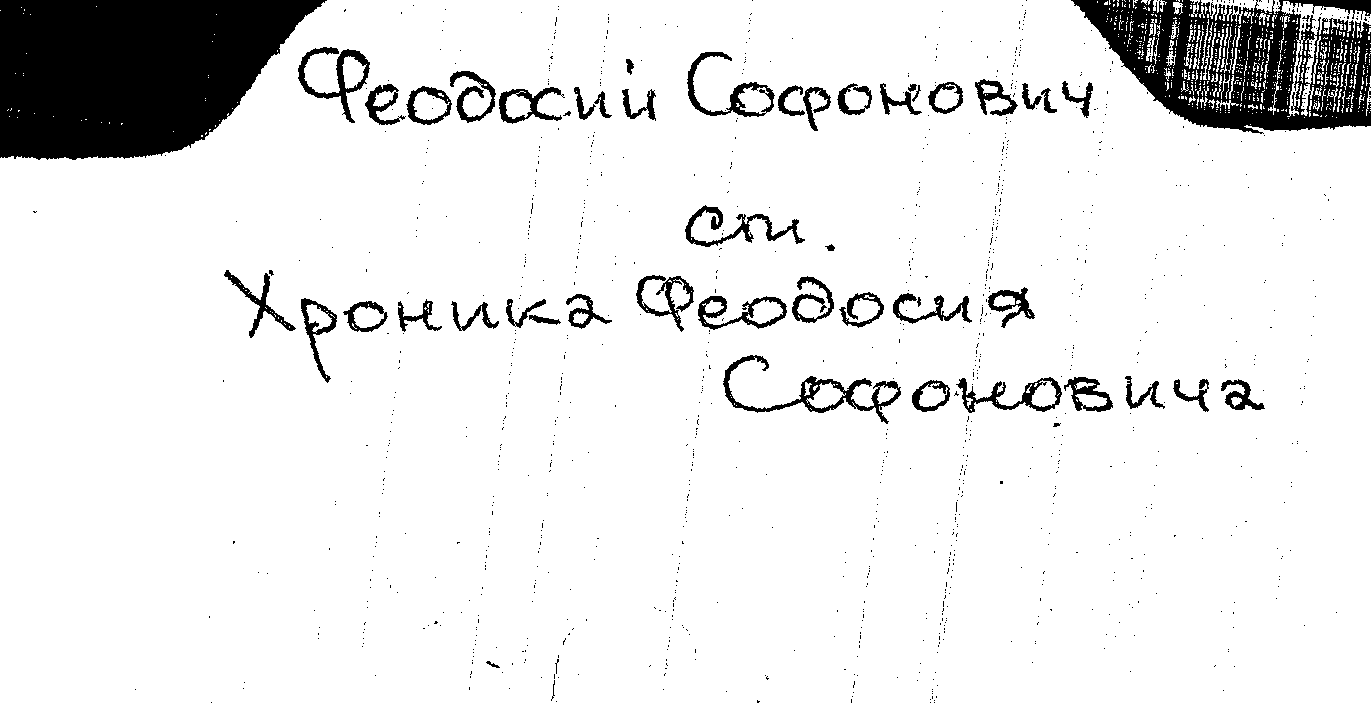 Феодосий Софонович
см.
Хроника Феодосия
Софоновича